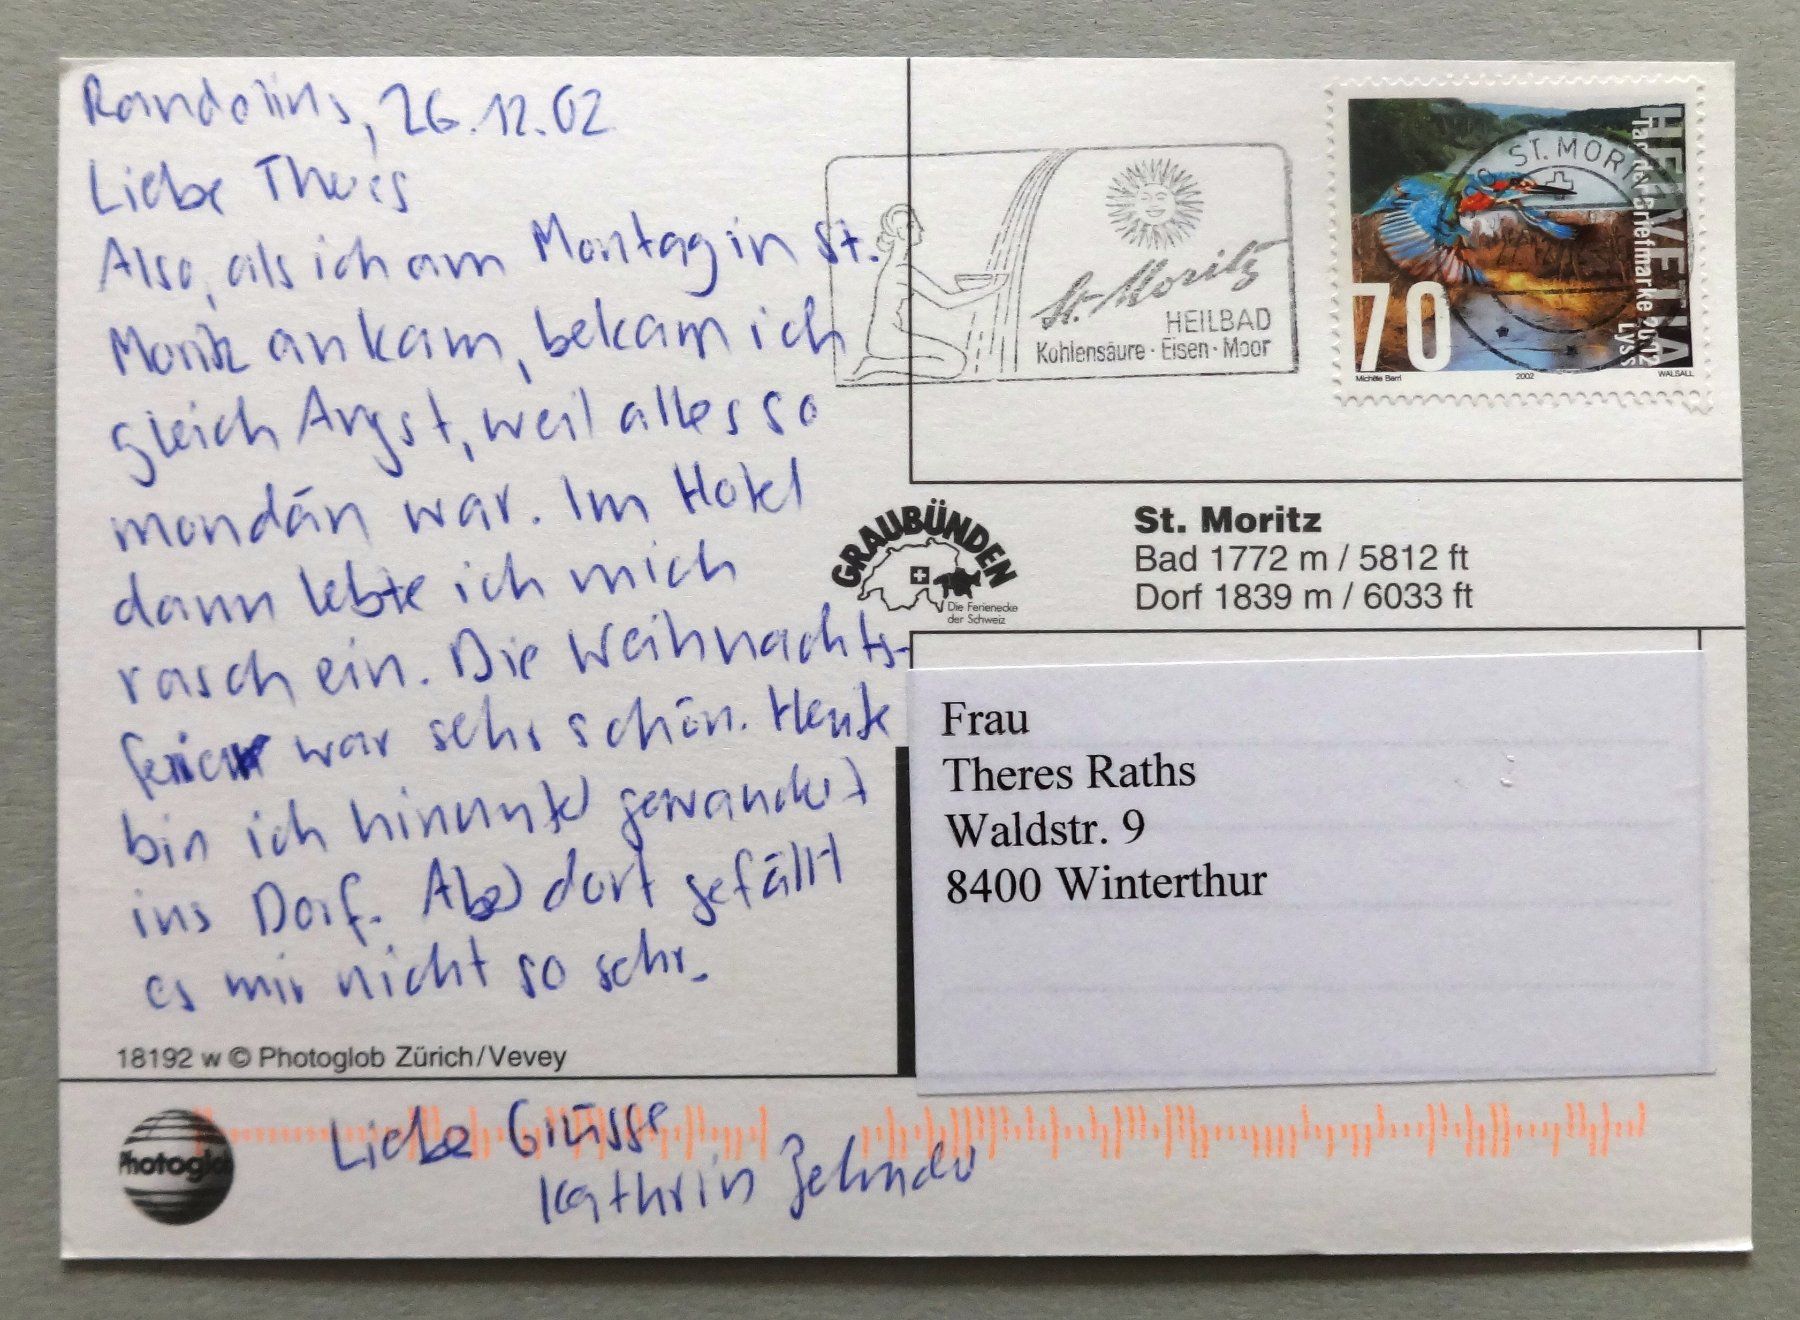 Randolins, 26.12.02
Liebe Theres
Also, als ich am Montag in St.
Moritz ankam, bekam ich
gleich Angst, weil alles so
mondän war. Im Hotel
dann lebte ich mich
rasch ein. Die Weihnachts-
feier war sehr schön. Heute
bin ich hinunter gewandert
ins Dorf. Aber dort gefällt
es mir nicht so sehr.
18192 w © Photoglob Zürich/Vevey
Photoglob
Liebe Grüsse
Kathrin Zehnder
St. Moritz
HEILBAD
Kohlensäure · Eisen · Moor
ST. MORITZ
HELVETIA
Tag der Briefmarke 2002
Lyss
70
Michèle Berri
2002
WALSALL
GRAUBÜNDEN
Die Ferienecke
der Schweiz
St. Moritz
Bad 1772 m / 5812 ft
Dorf 1839 m / 6033 ft
Frau
Theres Raths
Waldstr. 9
8400 Winterthur